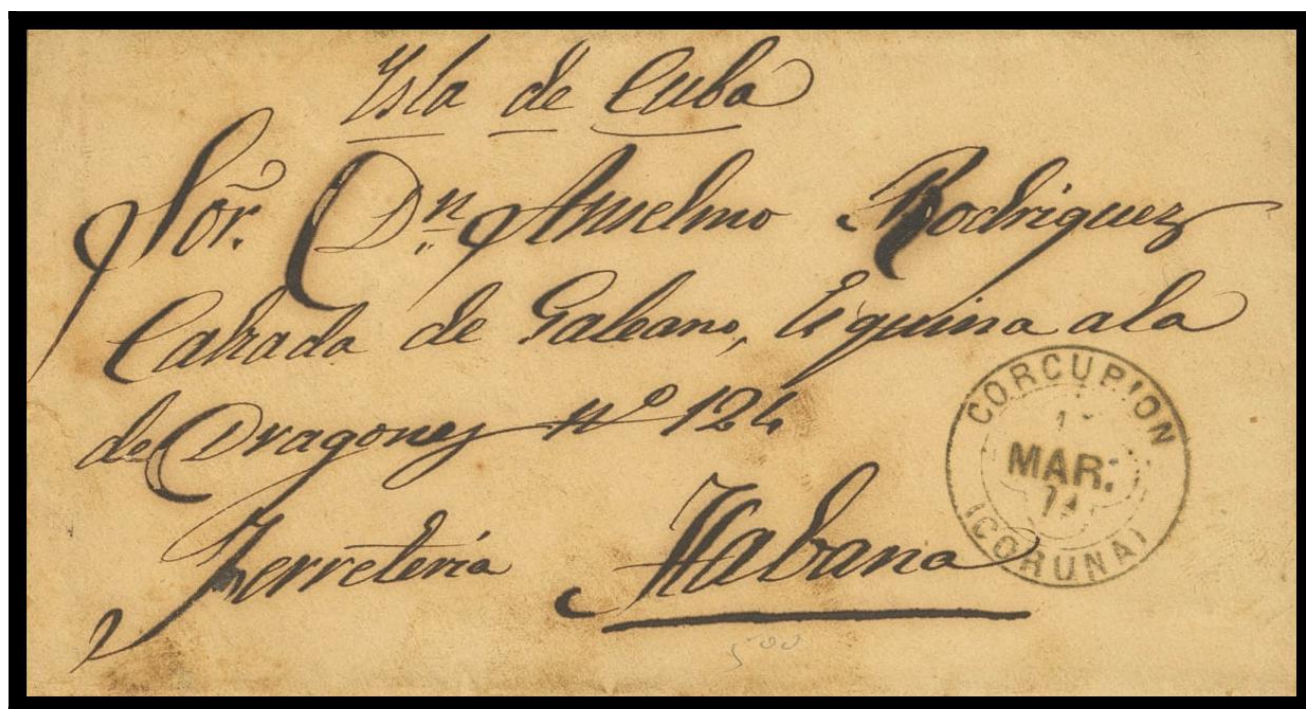 Isla de Cuba
Sor. Dn. Anselmo Rodriguez
Calzada de Galeano, Esquina a la
de Dragones nº 124
Ferretería Habana
CORCUBION
MAR:
(CORUÑA)
500